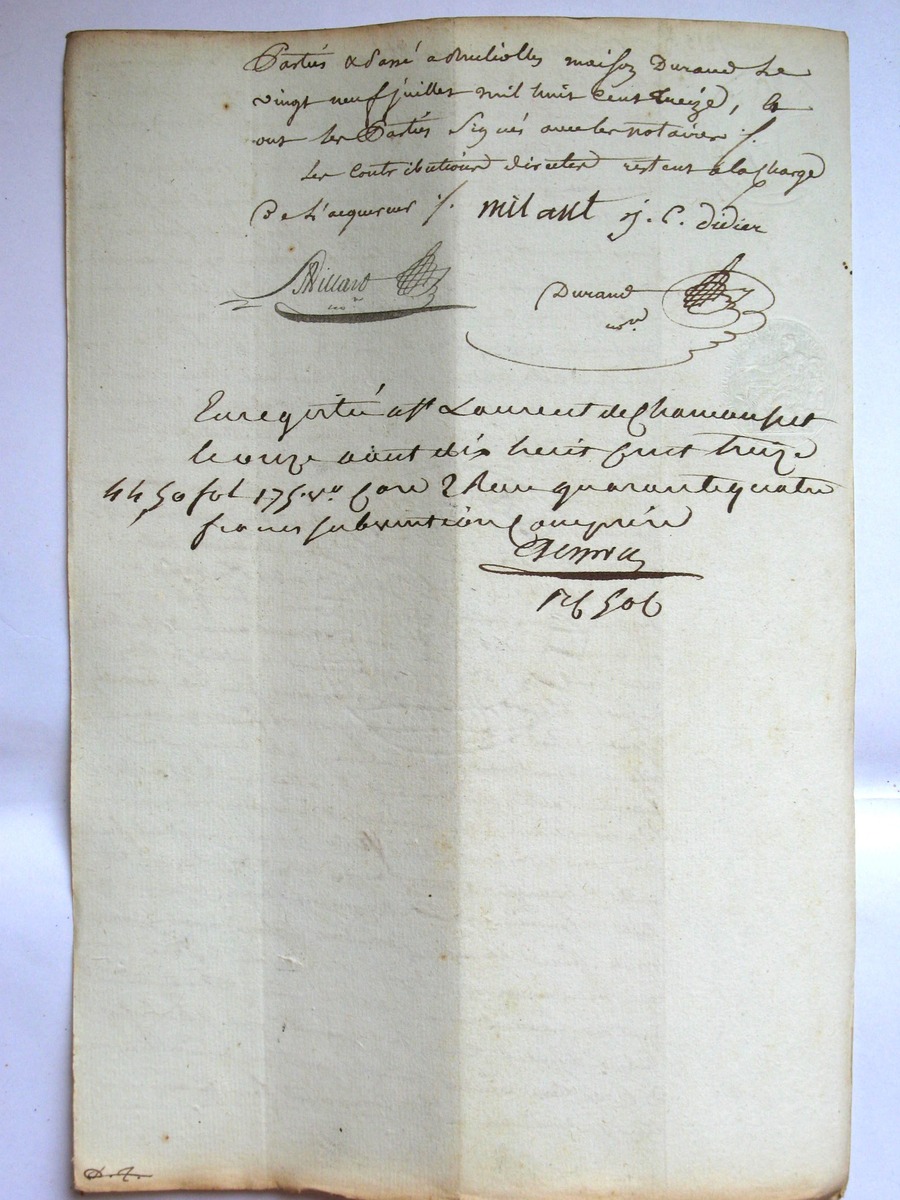 Partiés & Passé a maison Durand Le
vingt neuf juillet mil huit Cent treize, &
ont les Partiés Signés avec les notaires ./.
Les Contributions directes restent a la Charge
De L'acquereur ./. milant j. C. didier
Billard
Durand
nore
Enregistré a St Laurent de Chamousset
le onze aout dix huit cent treize
44,50 fol 175 vo Case 2 Recu quarante quatre
francs subvention Comprise